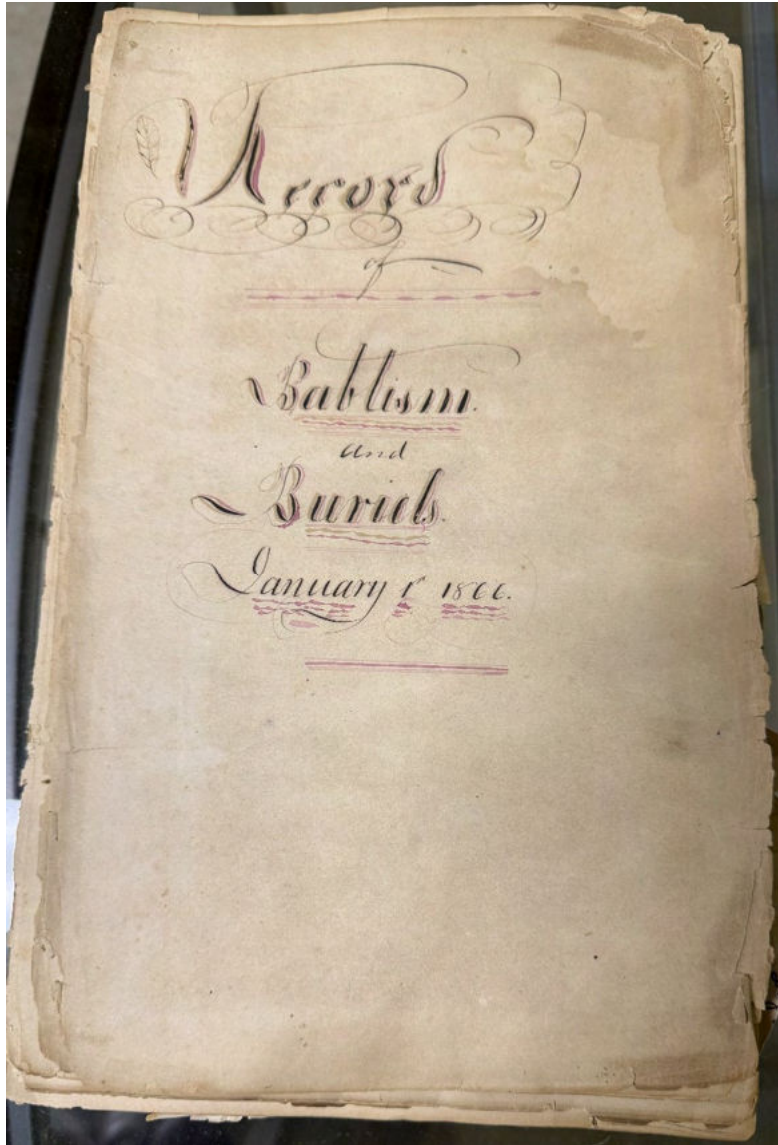 Record
of
Bablism.
and
Buriels.
January 1st 1866.